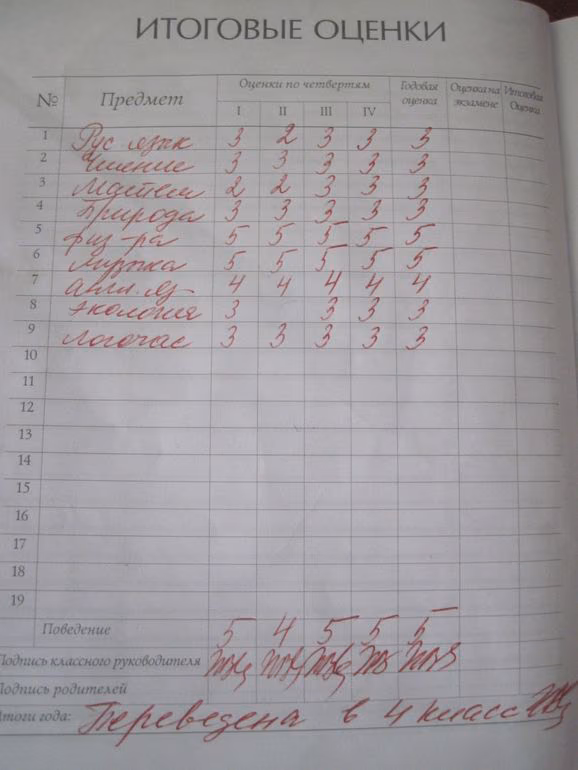 ИТОГОВЫЕ ОЦЕНКИ
№ Предмет Оценки по четвертям Годовая оценка Оценка на экзамене Итоговая Оценка
I II III IV
1 Рус язык 3 2 3 3 3
2 Чтение 3 3 3 3 3
3 Матем 2 2 3 3 3
4 Природа 3 3 3 3 3
5 физ-ра 5 5 5 5 5
6 музыка 5 5 5 5 5
7 англ. яз- 4 4 4 4 4
8 экология 3 3 3 3
9 логочас 3 3 3 3 3
10
11
12
13
14
15
16
17
18
19
Поведение 5 4 5 5 5
Подпись классного руководителя
Подпись родителей
Итоги года: Переведена в 4 класс